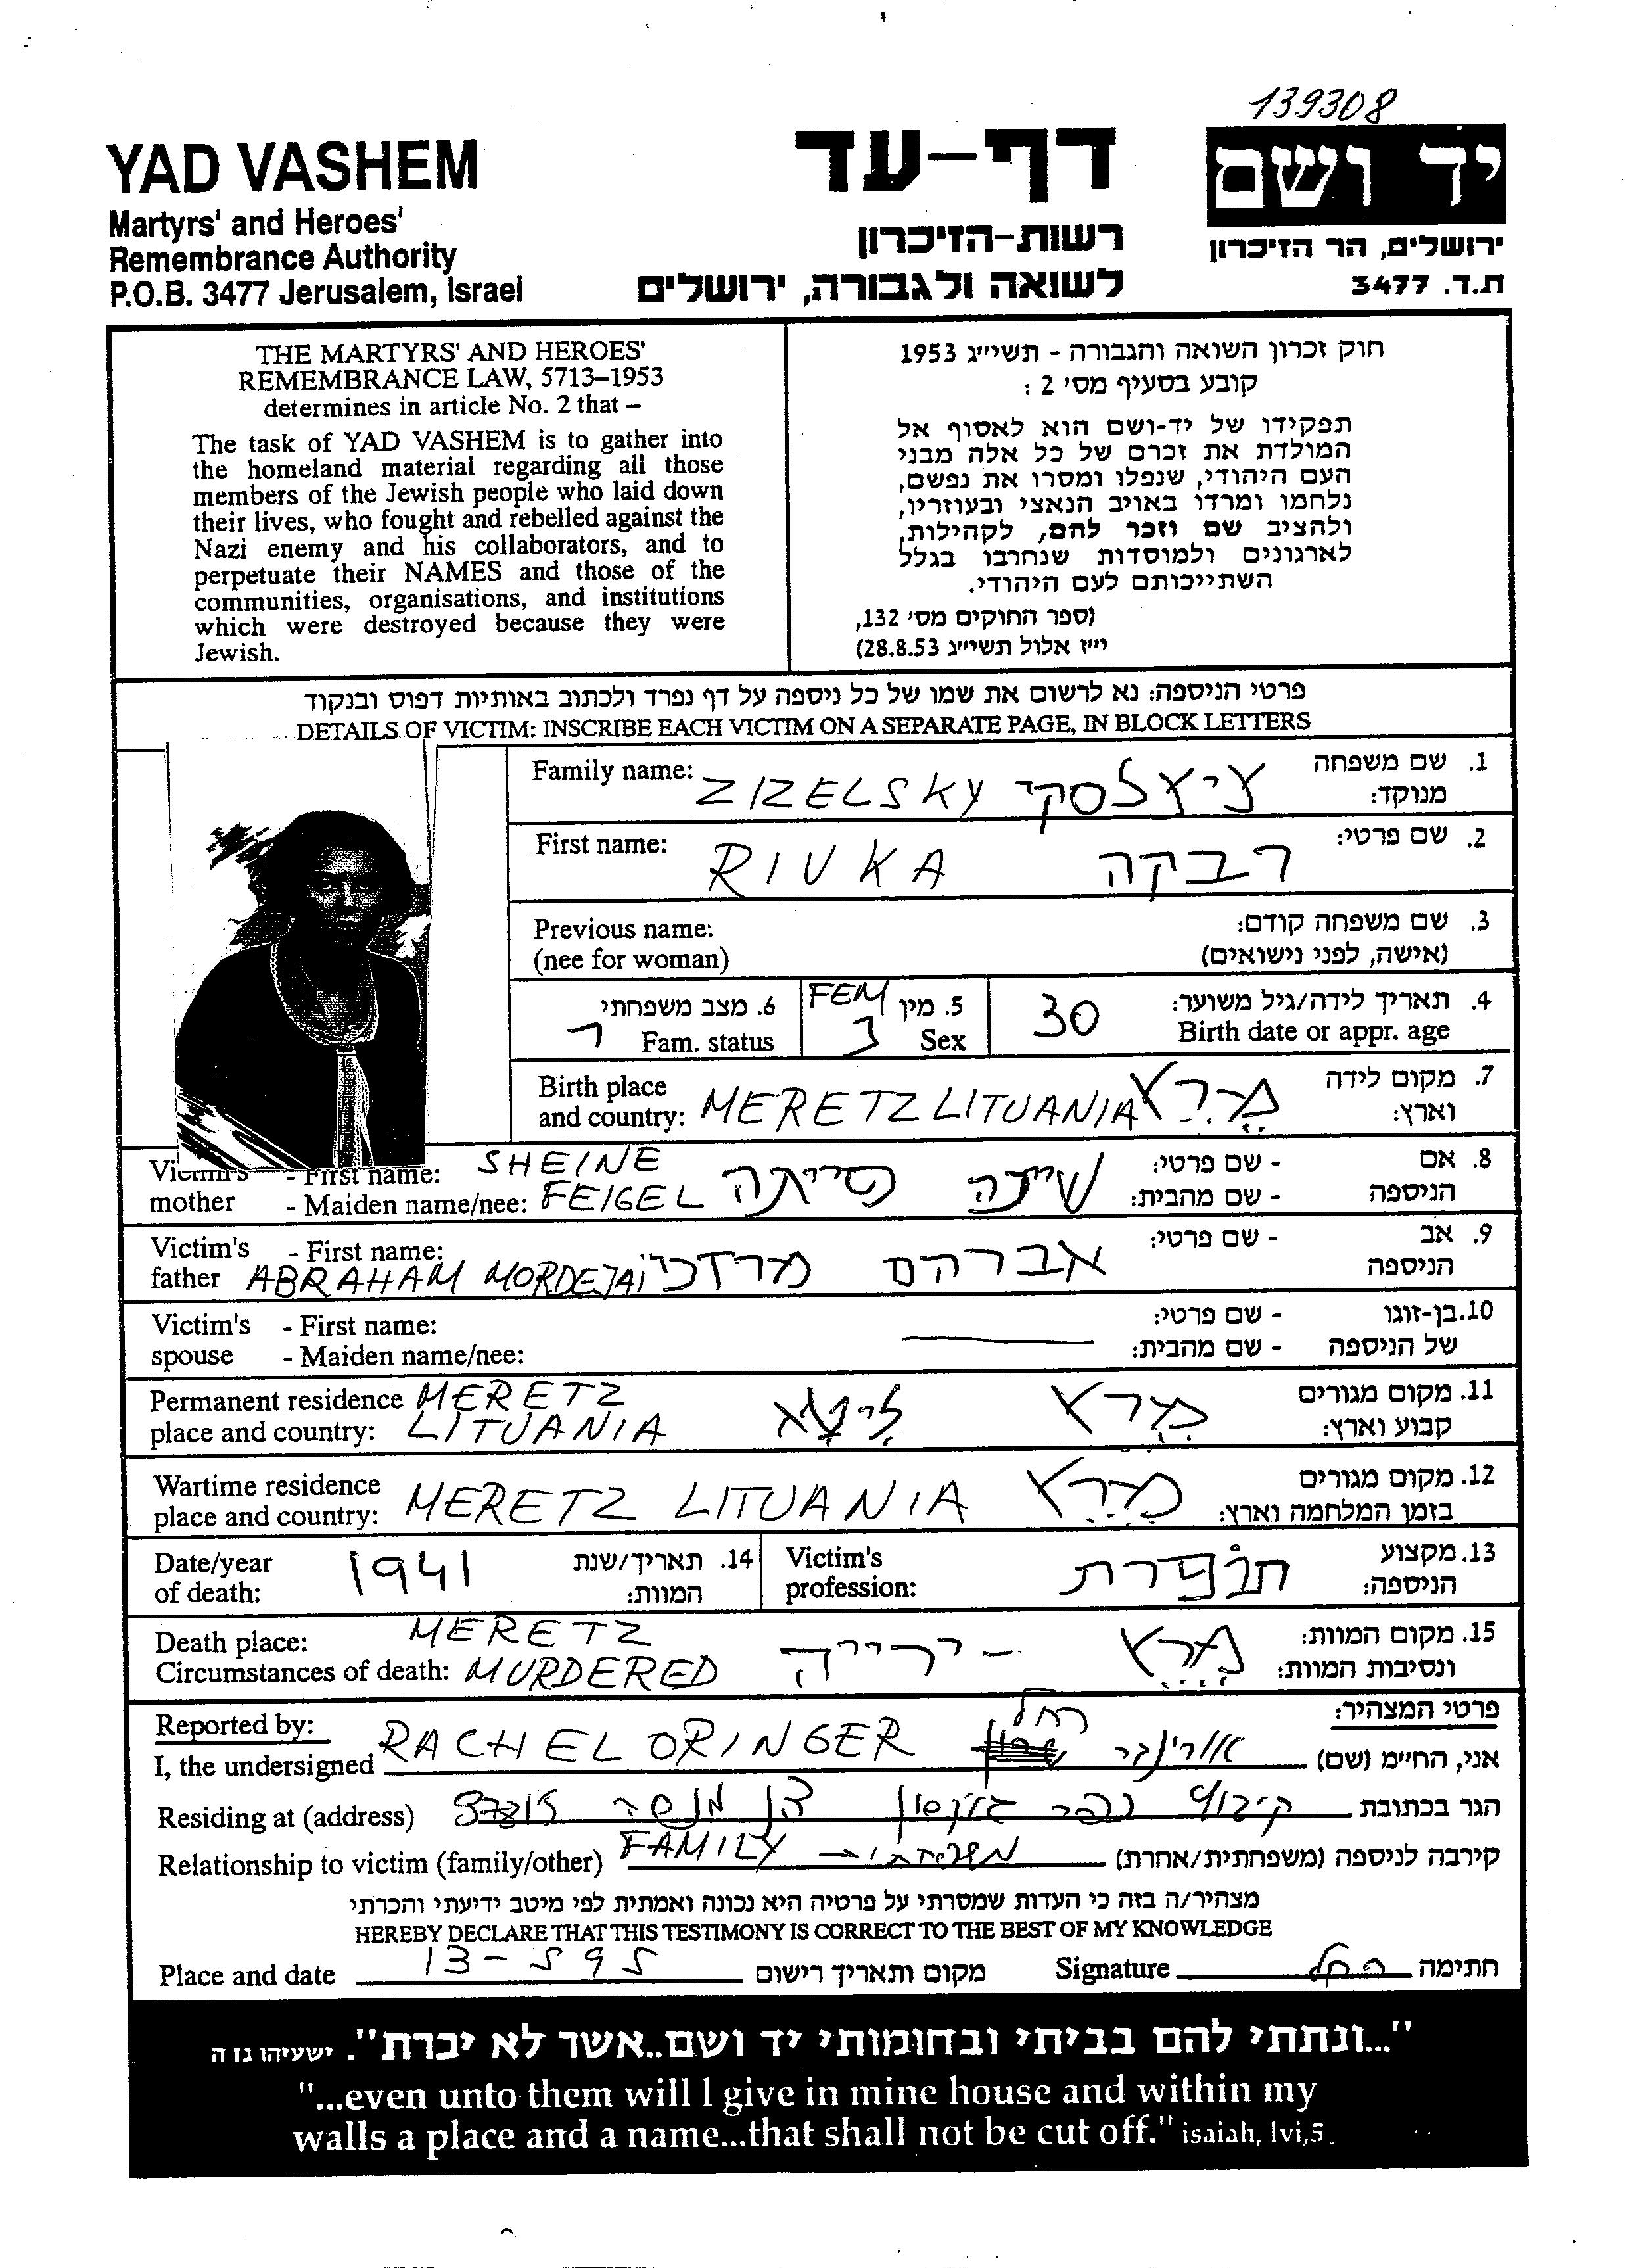 139308
YAD VASHEM
Martyrs' and Heroes'
Remembrance Authority
P.O.B. 3477 Jerusalem, Israel
דף-עד
רשות-הזיכרון
לשואה ולגבורה, ירושלים
יד ושם
ירושלים, הר הזיכרון
ת.ד. 3477
THE MARTYRS' AND HEROES'
REMEMBRANCE LAW, 5713–1953
determines in article No. 2 that –
The task of YAD VASHEM is to gather into
the homeland material regarding all those
members of the Jewish people who laid down
their lives, who fought and rebelled against the
Nazi enemy and his collaborators, and to
perpetuate their NAMES and those of the
communities, organisations, and institutions
which were destroyed because they were
Jewish.
חוק זכרון השואה והגבורה - תשי״ג 1953
קובע בסעיף מס׳ 2 :
תפקידו של יד-ושם הוא לאסוף אל
המולדת את זכרם של כל אלה מבני
העם היהודי, שנפלו ומסרו את נפשם,
נלחמו ומרדו באויב הנאצי ובעוזריו,
ולהציב שם וזכר להם, לקהילות,
לארגונים ולמוסדות שנחרבו בגלל
השתייכותם לעם היהודי.
(ספר החוקים מס׳ 132,
י״ז אלול תשי״ג 28.8.53)
פרטי הניספה: נא לרשום את שמו של כל ניספה על דף נפרד ולכתוב באותיות דפוס ובנקוד
DETAILS OF VICTIM: INSCRIBE EACH VICTIM ON A SEPARATE PAGE, IN BLOCK LETTERS
Family name: ZIZELSKY ציצלסקי 1. שם משפחה
מנוקד:
First name: RIVKA רבקה 2. שם פרטי:
Previous name: 3. שם משפחה קודם:
(nee for woman) (אישה, לפני נישואים)
6. מצב משפחתי FEM 5. מין 30 4. תאריך לידה/גיל משוער:
ר Fam. status נ Sex Birth date or appr. age
Birth place 7. מקום לידה
and country: MERETZ LITUANIA מרץ וארץ:
Victim's - First name: SHEINE שיינה - שם פרטי: 8. אם
mother - Maiden name/nee: FEIGEL - שם מהבית: הניספה
Victim's - First name: אברהם מרדכי - שם פרטי: 9. אב
father ABRAHAM MORDEJAI הניספה
Victim's - First name: - שם פרטי: 10. בן-זוגו
spouse - Maiden name/nee: - שם מהבית: של הניספה
Permanent residence MERETZ מרץ ליטא 11. מקום מגורים
place and country: LITUANIA קבוע וארץ:
Wartime residence 12. מקום מגורים
place and country: MERETZ LITUANIA מרץ בזמן המלחמה וארץ:
Date/year 1941 14. תאריך/שנת Victim's תופרת 13. מקצוע
of death: המוות: profession: הניספה:
Death place: MERETZ מרץ - ירייה 15. מקום המוות:
Circumstances of death: MURDERED ונסיבות המוות:
Reported by: פרטי המצהיר:
I, the undersigned RACHEL ORINGER רחל אורינגר אני, החי״מ (שם)
Residing at (address) קיבוץ גליקסון דן מנשה 37815 הגר בכתובת
Relationship to victim (family/other) FAMILY משפחתית קירבה לניספה (משפחתית/אחרת)
מצהיר/ה בזה כי העדות שמסרתי על פרטיה היא נכונה ואמתית לפי מיטב ידיעתי והכרתי
HEREBY DECLARE THAT THIS TESTIMONY IS CORRECT TO THE BEST OF MY KNOWLEDGE
Place and date 13-5 95 מקום ותאריך רישום Signature רחל חתימה
"...ונתתי להם בביתי ובחומותי יד ושם..אשר לא יכרת". ישעיהו נו ה
"...even unto them will I give in mine house and within my
walls a place and a name...that shall not be cut off." isaiah, lvi,5.